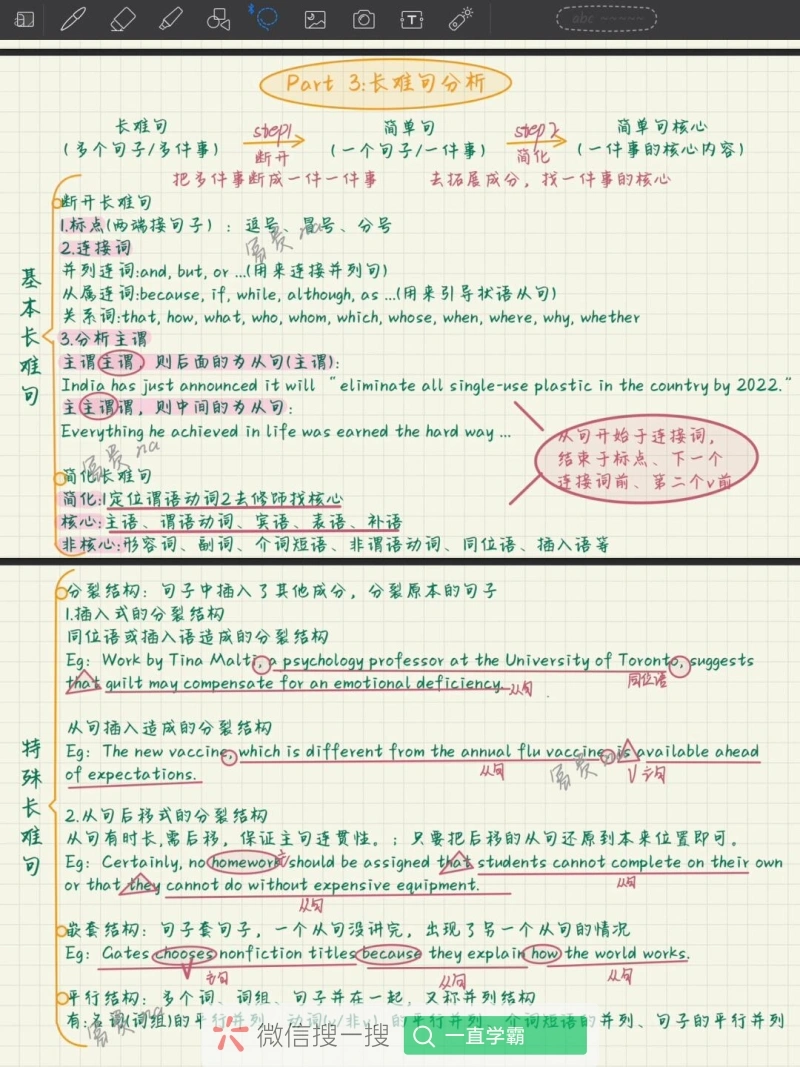 abc ~~~~~
Part 3:长难句分析
长难句 step1 简单句 step2 简单句核心
(多个句子/多件事) 断开 (一个句子/一件事) 简化 (一件事的核心内容)
把多件事断成一件一件事 去拓展成分，找一件事的核心
基本长难句
断开长难句
1.标点(两端接句子)：逗号、冒号、分号
2.连接词
并列连词:and, but, or ...(用来连接并列句)
从属连词:because, if, while, although, as ...(用来引导状语从句)
关系词:that, how, what, who, whom, which, whose, when, where, why, whether
3.分析主谓
主谓主谓，则后面的为从句(主谓):
India has just announced it will “eliminate all single-use plastic in the country by 2022.”
主主谓谓，则中间的为从句:
Everything he achieved in life was earned the hard way ...
从句开始于连接词,
结束于标点、下一个
连接词前、第二个v前
简化长难句
简化:1定位谓语动词2去修饰找核心
核心:主语、谓语动词、宾语、表语、补语
非核心:形容词、副词、介词短语、非谓语动词、同位语、插入语等
特殊长难句
分裂结构：句子中插入了其他成分，分裂原本的句子
1.插入式的分裂结构
同位语或插入语造成的分裂结构
Eg: Work by Tina Malti, a psychology professor at the University of Toronto, suggests
同位语
that guilt may compensate for an emotional deficiency.
从句
从句插入造成的分裂结构
Eg: The new vaccine, which is different from the annual flu vaccine, is available ahead
从句 V主句
of expectations.
2.从句后移式的分裂结构
从句有时长,需后移，保证主句连贯性。；只要把后移的从句还原到本来位置即可。
Eg: Certainly, no homework should be assigned that students cannot complete on their own
从句
or that they cannot do without expensive equipment.
从句
嵌套结构：句子套句子，一个从句没讲完，出现了另一个从句的情况
Eg: Gates chooses nonfiction titles because they explain how the world works.
V 主句 从句 从句
平行结构：多个词、词组、句子并在一起，又称并列结构
有:名词(词组)的平行并列、动词(v/非v)的平行并列、介词短语的并列、句子的平行并列
微信搜一搜 一直学霸